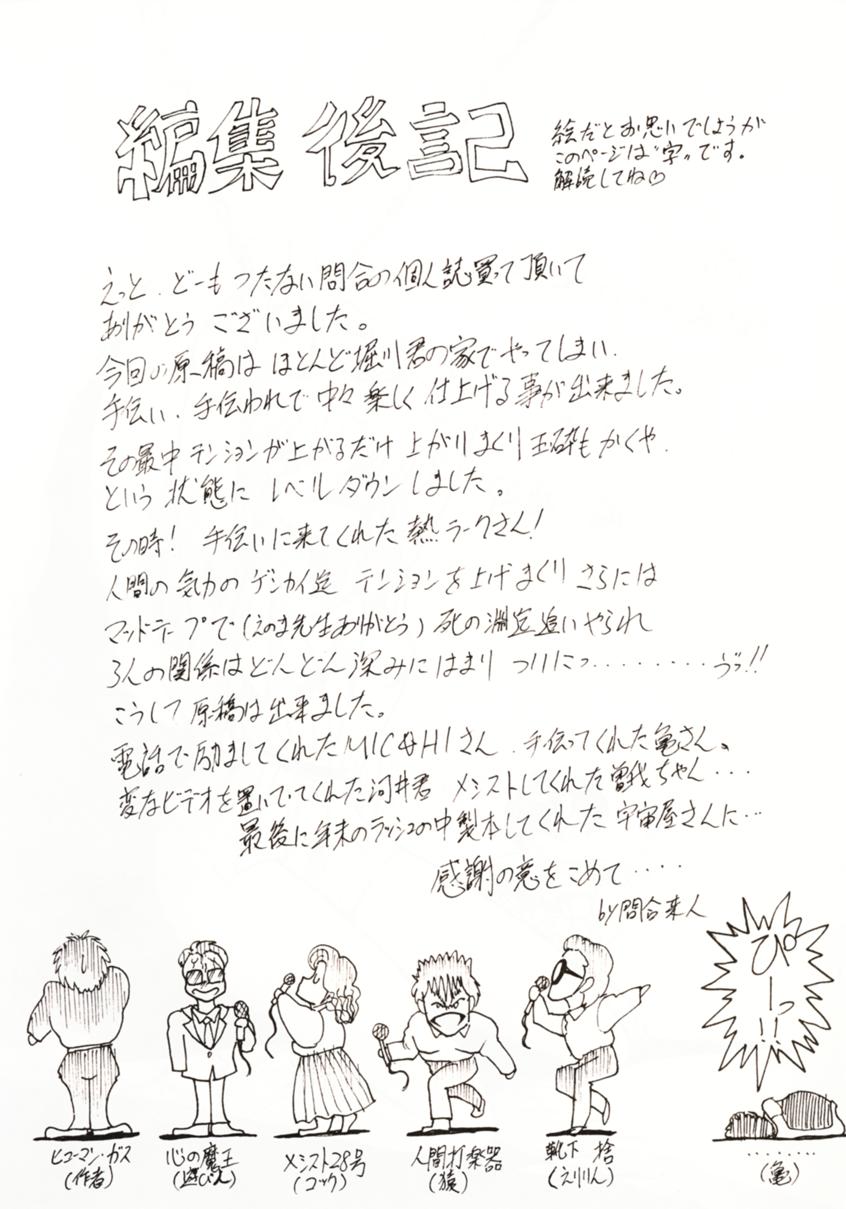 編集後記
絵だとお思いでしょうが
このページは〝字〟です。
解読してね♡
えっと、どーもつたない問合の個人誌買って頂いて
ありがとうございました。
今回の原稿は ほとんど堀川君の家でやってしまい、
手伝い、手伝われで中々楽しく仕上げる事が出来ました。
その最中テンションが上がるだけ上がりまくり玉砕もかくや、
という状態にレベルダウンしました。
その時! 手伝いに来てくれた熱ラークさん!
人間の気力のゲンカイ迄 テンションを上げまくり さらには
マッドテープで(えのま先生ありがとう)死の淵迄追いやられ
3人の関係はどんどん深みにはまり ついにっ・・・・・・・・・うっ!!
こうして原稿は出来ました。
電話で励ましてくれたさん、手伝ってくれた亀さん、
変なビデオを置いてってくれた河井君 メシストしてくれた曽我ちゃん・・・
最後に年末のラッシュの中製本してくれた宇宙屋さんに・・・
感謝の意をこめて・・・・
by問合来人
ぴーっ!!
ヒューマン・ガス
(作者)
心の魔王
(遊びん)
メシスト28号
(コック)
人間打楽器
(猿)
靴下 捨
(えりりん)
・・・・・・・・
(亀)